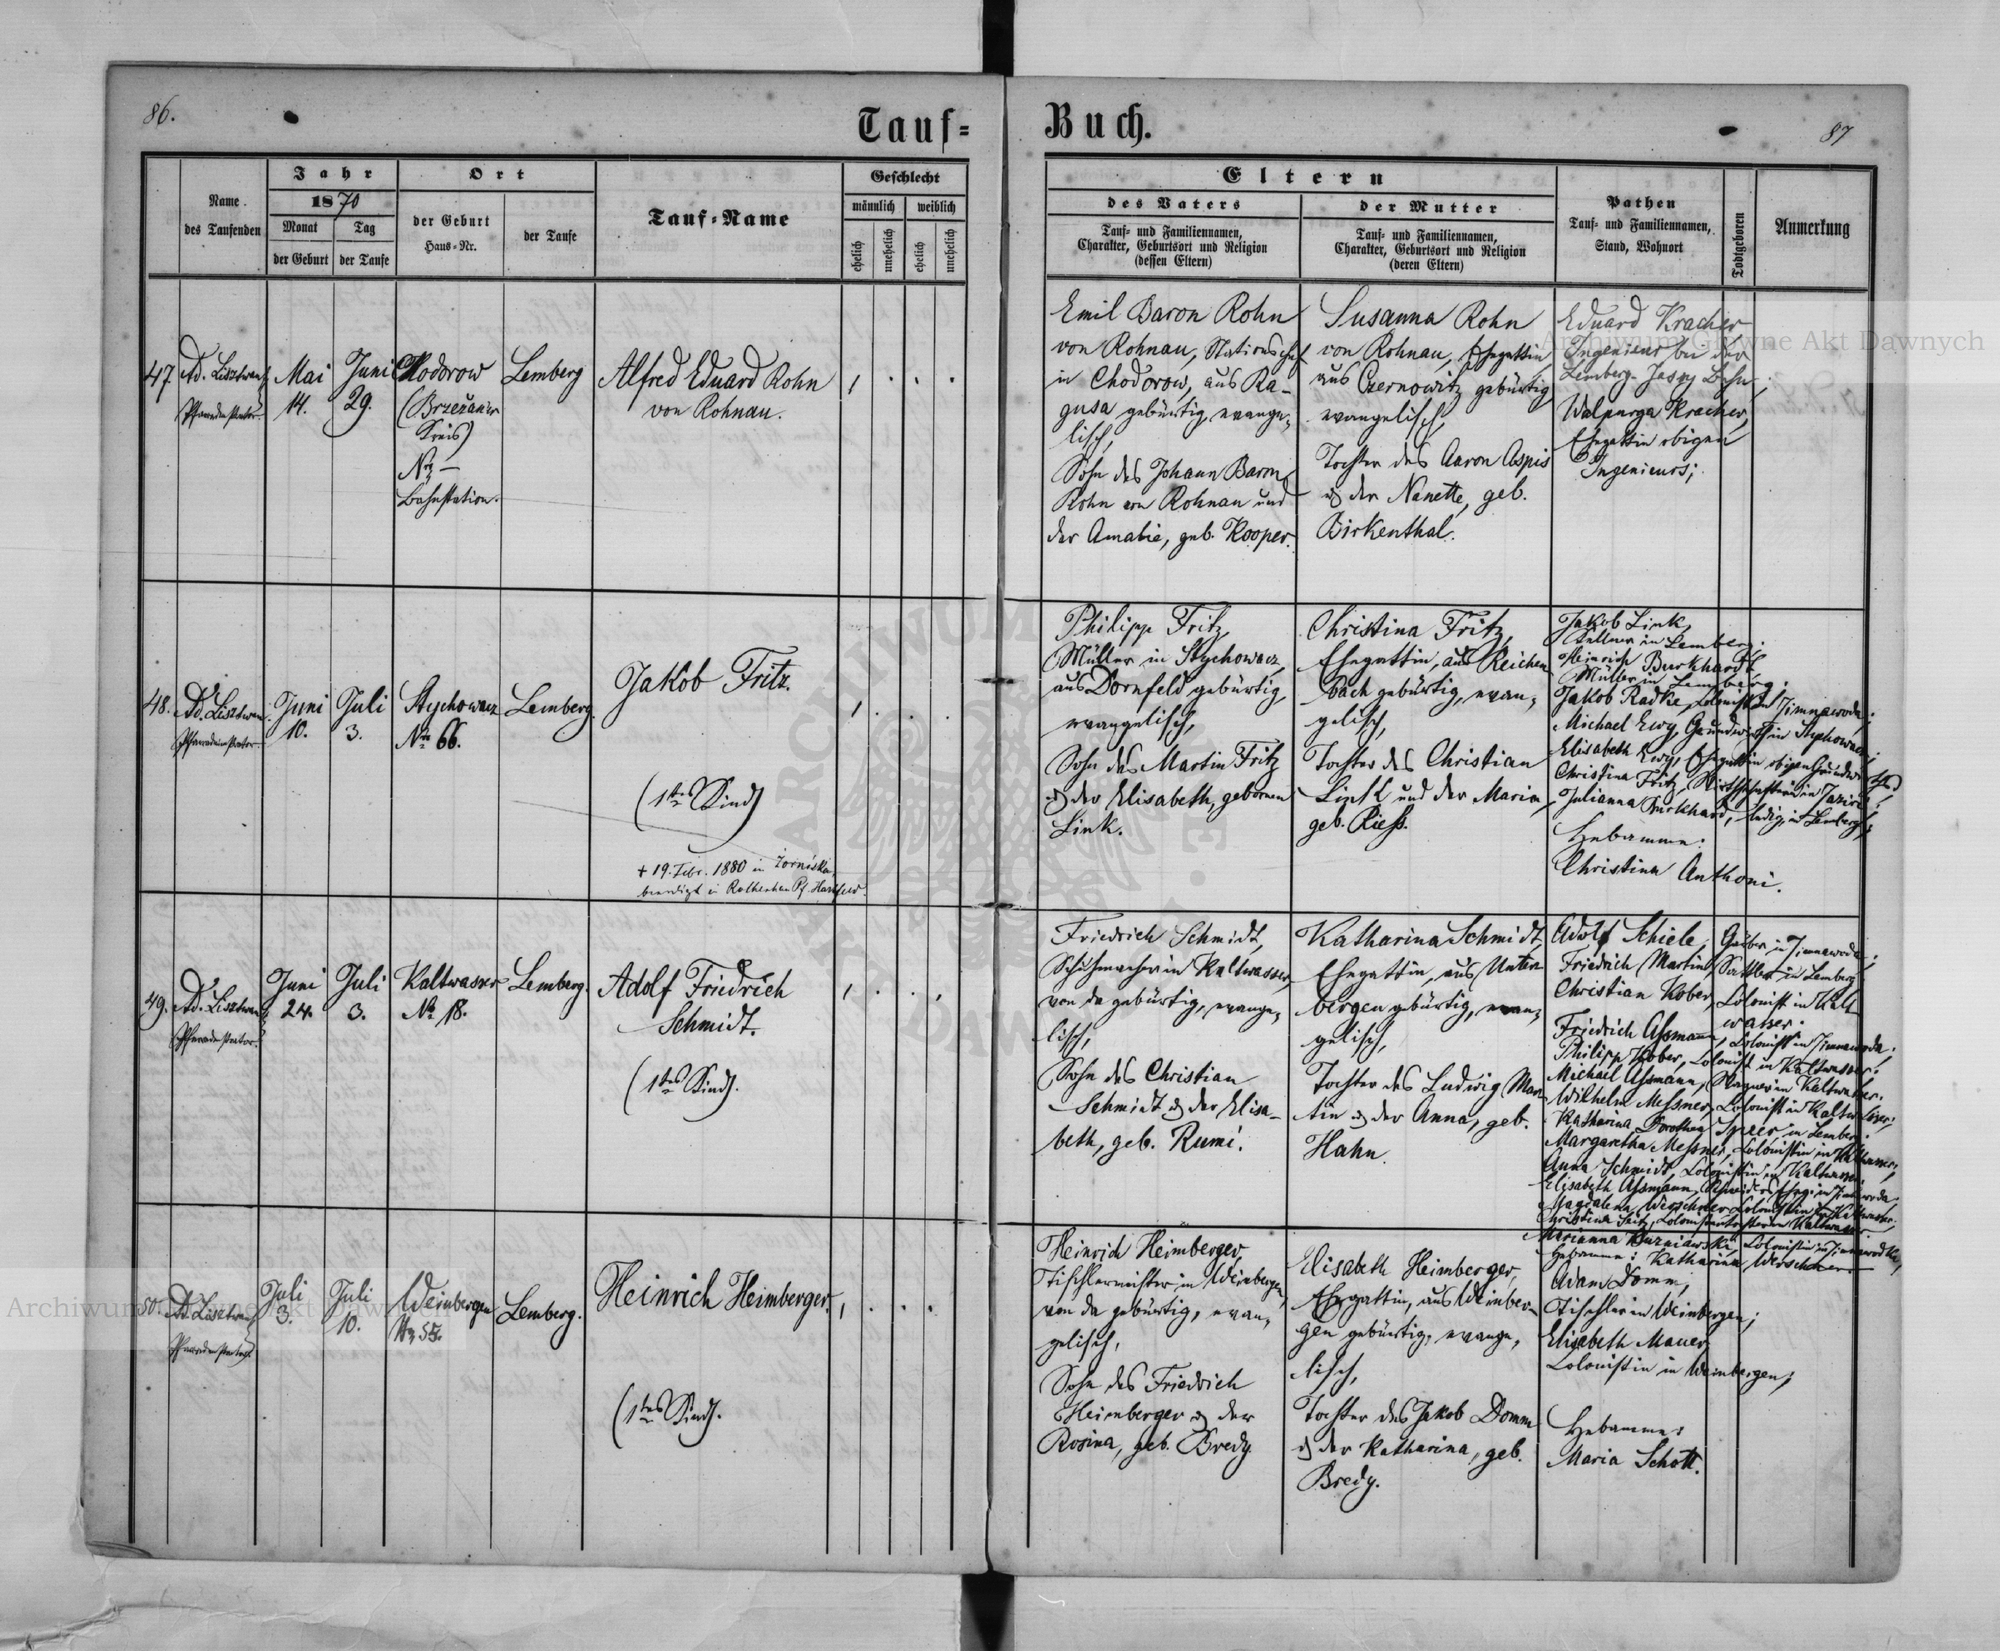 86.
Tauf=
Buch.
87
Name
des Taufenden
Jahr
1870
Monat
der Geburt
Tag
der Taufe
Ort
der Geburt
Haus=Nr.
der Taufe
Tauf=Name
Geschlecht
männlich
weiblich
ehelich
unehelich
ehelich
unehelich
Eltern
des Vaters
Tauf= und Familiennamen,
Charakter, Geburtsort und Religion
(dessen Eltern)
der Mutter
Tauf= und Familiennamen,
Charakter, Geburtsort und Religion
(deren Eltern)
Pathen
Tauf= und Familiennamen,
Stand, Wohnort
Todtgeboren
Anmerkung
47.
Ad. Lisztwan
Mai
14.
Juni
29.
Chodorow
(Brzežan'er
Kreis)
Nro —
Bahnstation.
Lemberg
Alfred Eduard Rohn
von Rohnau.
Emil Baron Rohn
von Rohnau, Stationschef
in Chodorow, aus Ra-
gusa gebürtig, evange-
lisch,
Sohn des Johann Baron
Rohn von Rohnau und
der Amalie, geb. Kooper.
Susanna Rohn
von Rohnau, Ehegattin
aus Czernowitz gebürtig
evangelisch,
Tochter des Aaron Aspis
& der Nanette, geb.
Birkenthal.
Eduard Kracher
Ingenieur bei der
Lemberg-Jassy Bahn;
Walpurga Kracher,
Ehegattin obigen
Ingenieurs;
48.
Ad. Lisztwan
Juni
10.
Juli
3.
Stychowacz
No 66.
Lemberg.
Jakob Fritz.
(1tes Kind)
+ 19. Febr. 1880 in Zorniska
beerdigt in
Philipp Fritz,
Müller in Stychowacz,
aus Dornfeld gebürtig,
evangelisch,
Sohn des Martin Fritz
& der Elisabeth, gebornen
Link.
Christina Fritz,
Ehegattin, aus Reichen
bach gebürtig, evan-
gelisch,
Tochter des Christian
Link und der Maria,
geb. Riess.
Jakob Link,
Kellner in Lemberg;
Heinrich Burkhardt
Müller in Lemberg;
Jakob Radke, Colonist in Zimnawoda;
Michael Ewy, Grundwirth in Stychowacz;
Elisabeth Ewy, Ehegattin obigen Grundwirths;
Christina Fritz, Wirthschafterin in
Julianna Burkhard, ledig, in Lemberg;
Hebamme:
Christina Anthoni.
49.
Ad. Lisztwan
Juni
24.
Juli
3.
Kaltwasser
No 18.
Lemberg.
Adolf Friedrich
Schmidt.
(1tes Kind).
Friedrich Schmidt,
Schuhmacher in Kaltwasser,
von da gebürtig, evange-
lisch,
Sohn des Christian
Schmidt & der Elisa-
beth, geb. Rumi.
Katharina Schmidt,
Ehegattin, aus Unter
bergen gebürtig, evan-
gelisch,
Tochter des Ludwig Mar-
tin & der Anna, geb.
Hahn.
Adolf Schiele, in Zimnawoda;
Friedrich Martin, Sattler in Lemberg;
Christian Kober, Colonist in Kalt
wasser.
Friedrich Assmann, Colonist in Zimnawoda;
Philipp Kober, Colonist in Kaltwasser;
Michael Assmann, Wagner in Kaltwasser;
Wilhelm Messner, Colonist in Kaltwasser;
Katharina Dorothea Speer in Lemberg.
Margaretha Messner, Colonistin in Kaltwasser;
Anna Schmidt, Colonistin in Kaltwasser;
Elisabeth Assmann, in Zimnawoda;
Magdalena Werschner Colonistin in Kaltwasser;
Christina Seitz, Colonistentochter in Kaltwasser
Marianna Kuzniarski, Colonistin in Zimnawodka;
Hebamme: Katharina Werschner.
50.
Ad. Lisztwan
Juli
3.
Juli
10.
Weinbergen
No 55.
Lemberg.
Heinrich Heimberger.
(1tes Kind).
Heinrich Heimberger,
Tischlermeister in Weinbergen,
von da gebürtig, evan-
gelisch,
Sohn des Friedrich
Heimberger & der
Rosina, geb. Bredy.
Elisabeth Heimberger,
Ehegattin, aus Weinber-
gen gebürtig, evange-
lisch,
Tochter des Jakob Domm
& der Katharina, geb.
Bredy.
Adam Domm,
Tischler in Weinbergen;
Elisabeth Mauer,
Colonistin in Weinbergen;
Hebamme:
Maria Schott.
Archiwum Główne Akt Dawnych
Archiwum Główne Akt Dawnych